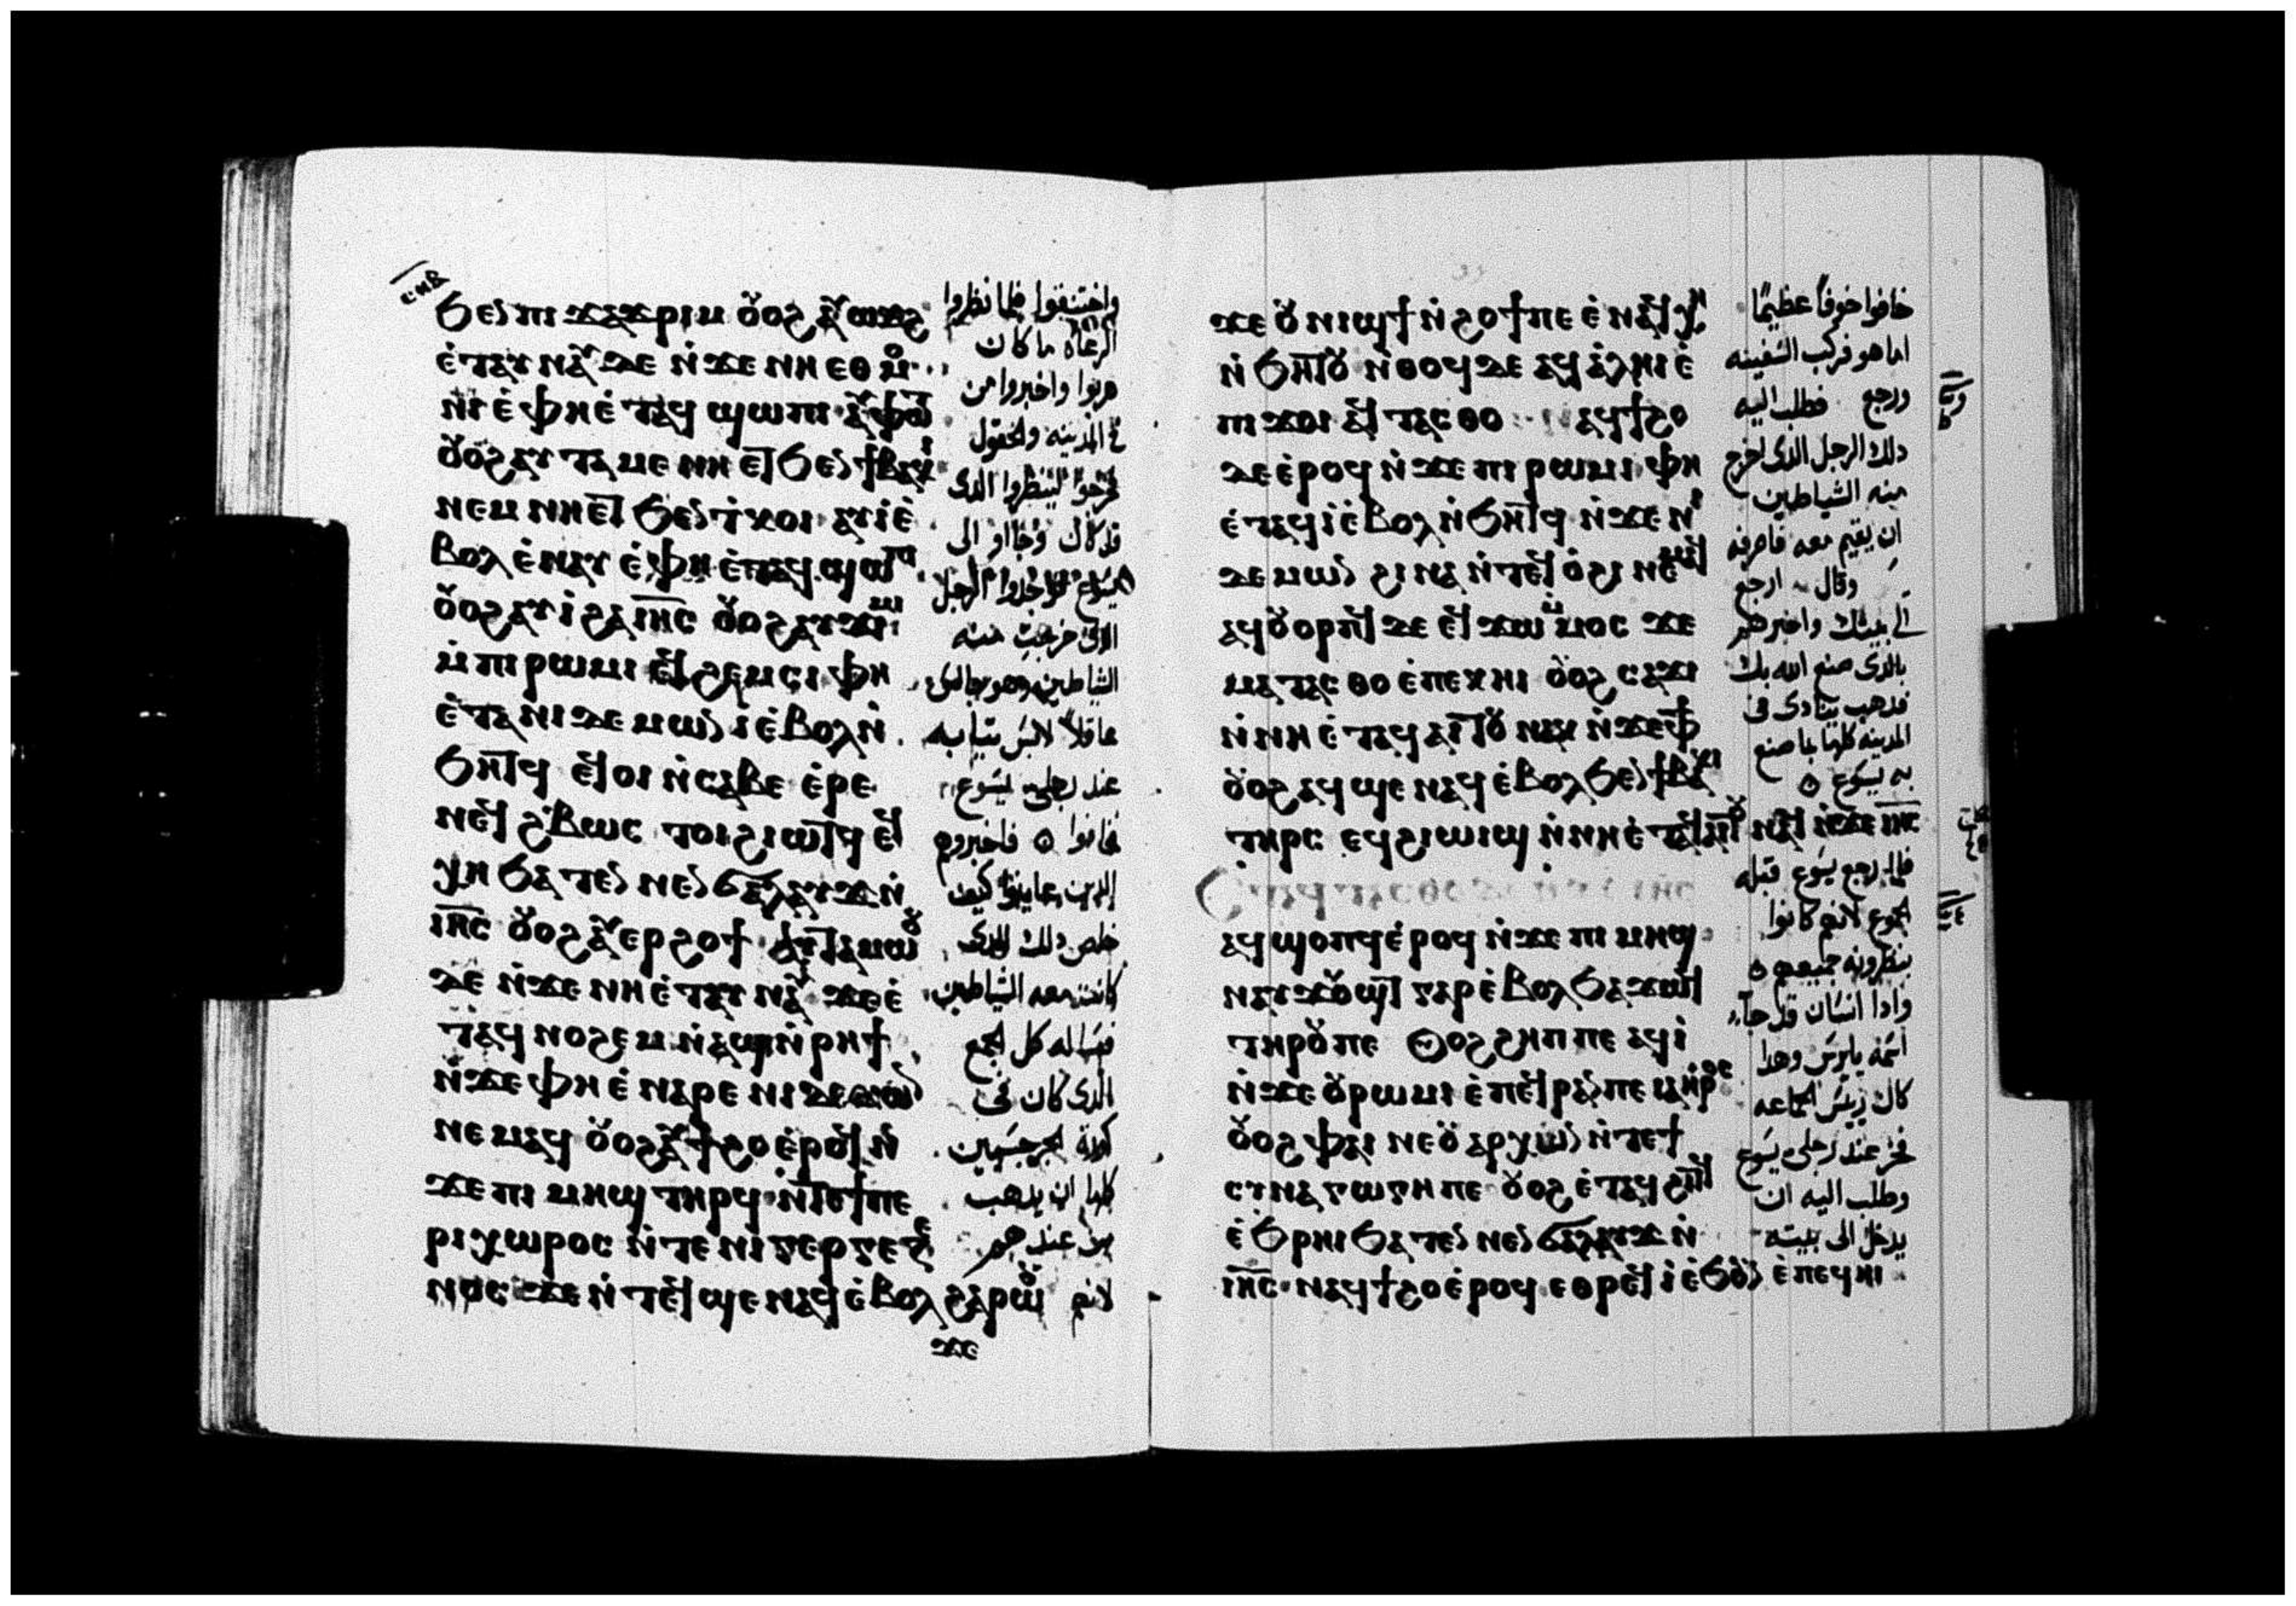 ϧⲉⲛ ⲡⲓ ϫⲁϫⲣⲓⲙ ⲟⲩⲟϩ ⲁⲩⲱϫϩ
ⲉ̀ⲧⲁⲩ ⲛⲁⲩ ⲇⲉ ⲛ̀ϫⲉ ⲛⲏ ⲉⲑⲙⲟ
ⲛⲓ ⲉ̀ⲫⲏ ⲉ̀ⲧⲁϥ ϣⲱⲡⲓ ⲁⲩⲫⲱⲧ
ⲟⲩⲟϩ ⲁⲩ ⲧⲁⲙⲉ ⲛⲏ ⲉⲧ ϧⲉⲛ ϯⲃⲁⲕⲓ
ⲛⲉⲙ ⲛⲏⲉⲧ ϧⲉⲛ ⲧ̀ⲕⲟⲓ ⲁⲩⲓ̀ⲉ̀
ⲃⲟⲗ ⲉ̀ⲛⲁⲩ ⲉ̀ⲫⲏ ⲉ̀ⲧⲁϥ ϣⲱⲡⲓ
ⲟⲩⲟϩ ⲁⲩⲓ̀ ϩⲁ ⲓⲏ̅ⲥ̅ ⲟⲩⲟϩ ⲁⲩϫⲓⲙⲓ
ⲙ̀ⲡⲓⲣⲱⲙⲓ ⲉϥ ϩⲉⲙⲥⲓ ⲫⲏ
ⲉ̀ⲧⲁ ⲛⲓ ⲇⲉⲙⲱⲛ ⲓ̀ ⲉ̀ⲃⲟⲗ ⲛ̀
ϧⲏⲧϥ ⲉϥⲟⲓ ⲛ̀ⲥⲁⲃⲉ ⲉ̀ⲣⲉ
ⲛⲉϥ ϩ̀ⲃⲱⲥ ⲧⲟⲓ ϩⲓⲱⲧϥ ⲉϥ
ⲭⲏ ϧⲁⲧⲉⲛ ⲛⲉⲛ ϭⲁⲗⲁⲩϫ ⲛ̀
ⲓⲏ̅ⲥ̅ ⲟⲩⲟϩ ⲁⲩⲉⲣϩⲟϯ ⲁⲩⲧⲁⲙⲱⲟⲩ
ⲇⲉ ⲛ̀ϫⲉ ⲛⲏ ⲉ̀ⲧⲁⲩ ⲛⲁⲩ ϫⲉ ⲉ̀
ⲧⲁϥ ⲛⲟϩⲉⲙ ⲛ̀ⲁϣ ⲛ̀ⲣⲏϯ
ⲛ̀ϫⲉ ⲫⲏ ⲉ̀ⲛⲁⲣⲉ ⲛⲓ ⲇⲉⲙⲱⲛ
ⲛⲉⲙⲁϥ ⲟⲩⲟϩ ⲁⲩϯϩⲟ ⲉ̀ⲣⲟϥ ⲛ̀
ϫⲉ ⲡⲓ ⲙⲏϣ ⲧⲏⲣϥ ⲛ̀ⲧⲉ ϯⲡⲉ
ⲣⲓⲭⲱⲣⲟⲥ ⲛ̀ⲧⲉ ⲛⲓ ⲅⲉⲣⲅⲉⲥⲉ
ⲛⲟⲥ ϫⲉ ⲛ̀ⲧⲉϥ ϣⲉ ⲛⲁϥ ⲉ̀ⲃⲟⲗ ϩⲁⲣⲱⲟⲩ
ϫⲉ
واختنقوا فلما نظروا
الرعاه ما كان
هربوا واخبروا من
في المدينه والحقول
فخرجوا لينظروا الدى
قد كان وجااوا الى
يسوع فوجدوا الرجل
الدى خرجت منه
الشياطين وهو جالس
عاقلا لابس ثيابه
عند رجلى يسوع
فخافوا فاخبروهم
الدين عاينوا كيف
خلص دلك الدى
كانت معه الشياطين
فساله كل الجمع
الدى كان فى
كورة الجرجسيين
كلها ان يدهب
من عندهم
لانهم
ϫⲉ ⲟⲩ ⲛⲓϣϯ ⲛ̀ϩⲟϯ ⲡⲉ ⲉ̀ⲛⲁϥⲭⲏ
ⲛ̀ϧⲏⲧⲟⲩ ⲛ̀ⲑⲟϥ ⲇⲉ ⲁϥ ⲁ̀ⲗⲏⲓ ⲉ̀
ⲡⲓ ϫⲟⲓ ⲁϥ ⲧⲁⲥⲑⲟ ⲁϥϯϩⲟ
ⲇⲉ ⲉ̀ⲣⲟϥ ⲛ̀ϫⲉ ⲡⲓ ⲣⲱⲙⲓ ⲫⲏ
ⲉ̀ⲧⲁϥⲓ̀ ⲉ̀ⲃⲟⲗ ⲛ̀ϧⲏⲧϥ ⲛ̀ϫⲉ ⲛⲓ
ⲇⲉⲙⲱⲛ ϩⲓⲛⲁ ⲛ̀ⲧⲉϥ ⲟ̀ϩⲓ ⲛⲉⲙⲁϥ
ⲁϥⲟⲩⲟⲣⲡϥ ⲇⲉ ⲉϥϫⲱ ⲙ̀ⲙⲟⲥ ϫⲉ
ⲙⲁ ⲧⲁⲥⲑⲟ ⲉ̀ⲡⲉⲕⲏⲓ ⲟⲩⲟϩ ⲥⲁϫⲓ
ⲛ̀ⲛⲏ ⲉ̀ⲧⲁϥ ⲁⲓⲧⲟⲩ ⲛⲁⲕ ⲛ̀ϫⲉ ⲫϯ
ⲟⲩⲟϩ ⲁϥ ϣⲉ ⲛⲁϥ ⲉ̀ⲃⲟⲗ ϧⲉⲛ ϯⲃⲁⲕⲓ
ⲧⲏⲣⲥ ⲉϥϩⲓⲱⲓϣ ⲛ̀ⲛⲏ ⲉ̀ⲧⲁϥⲁⲓⲧⲟⲩ ⲛⲁϥ ⲛ̀ϫⲉ ⲓⲏ̅ⲥ̅
ⲁϥ ϣⲟⲡϥ ⲉ̀ⲣⲟϥ ⲛ̀ϫⲉ ⲡⲓ ⲙⲏϣ
ⲛⲁⲩ ϫⲟⲩϣⲧ ⲅⲁⲣ ⲉ̀ⲃⲟⲗ ϧⲁϫⲱϥ
ⲧⲏⲣⲟⲩ ⲡⲉ ⲟⲩⲟϩ ϩⲏⲡⲡⲉ ⲁϥⲓ̀
ⲛ̀ϫⲉ ⲟⲩⲣⲱⲙⲓ ⲉ̀ⲡⲉϥⲣⲁⲛ ⲡⲉ ⲓⲁⲏⲣⲟⲥ
ⲟⲩⲟϩ ⲫⲁⲓ ⲛⲉ ⲟⲩ ⲁⲣⲭⲱⲛ ⲛ̀ⲧⲉ ϯ
ⲥⲩⲛⲁⲅⲱⲅⲏ ⲡⲉ ⲟⲩⲟϩ ⲉ̀ⲧⲁϥ ϩⲓⲧϥ
ⲉ̀ϧⲣⲏⲓ ϧⲁⲧⲉⲛ ⲛⲉⲛ ϭⲁⲗⲁⲩϫ ⲛ̀
ⲓⲏ̅ⲥ̅ ⲛⲁϥϯϩⲟ ⲉ̀ⲣⲟϥ ⲉⲑⲣⲉϥ ⲓ̀ ⲉ̀ϧⲟⲩⲛ ⲉ̀ⲡⲉϥⲏⲓ
خافوا خوفاً عظيمًا
اما هو فركب السفينه
ورجع فطلب اليه
دلك الرجل الدى اخرج
منه الشياطين
ان يقيم معه فاصرفه
وقال ارجع
الي بيتك واخبرهم
بالدى صنع الله بك
فدهب ينادى فى
المدينه كلها بما صنع
به يسوع
فلما رجع يسوع قبله
الجموع لانهم كانوا
ينظرونه جميعهم
وادا انسان قد جآء
اسمه يايرس وهدا
كان رييس الجماعه
فخر عند رجلى يسوع
وطلب اليه ان
يدخل الى بيته